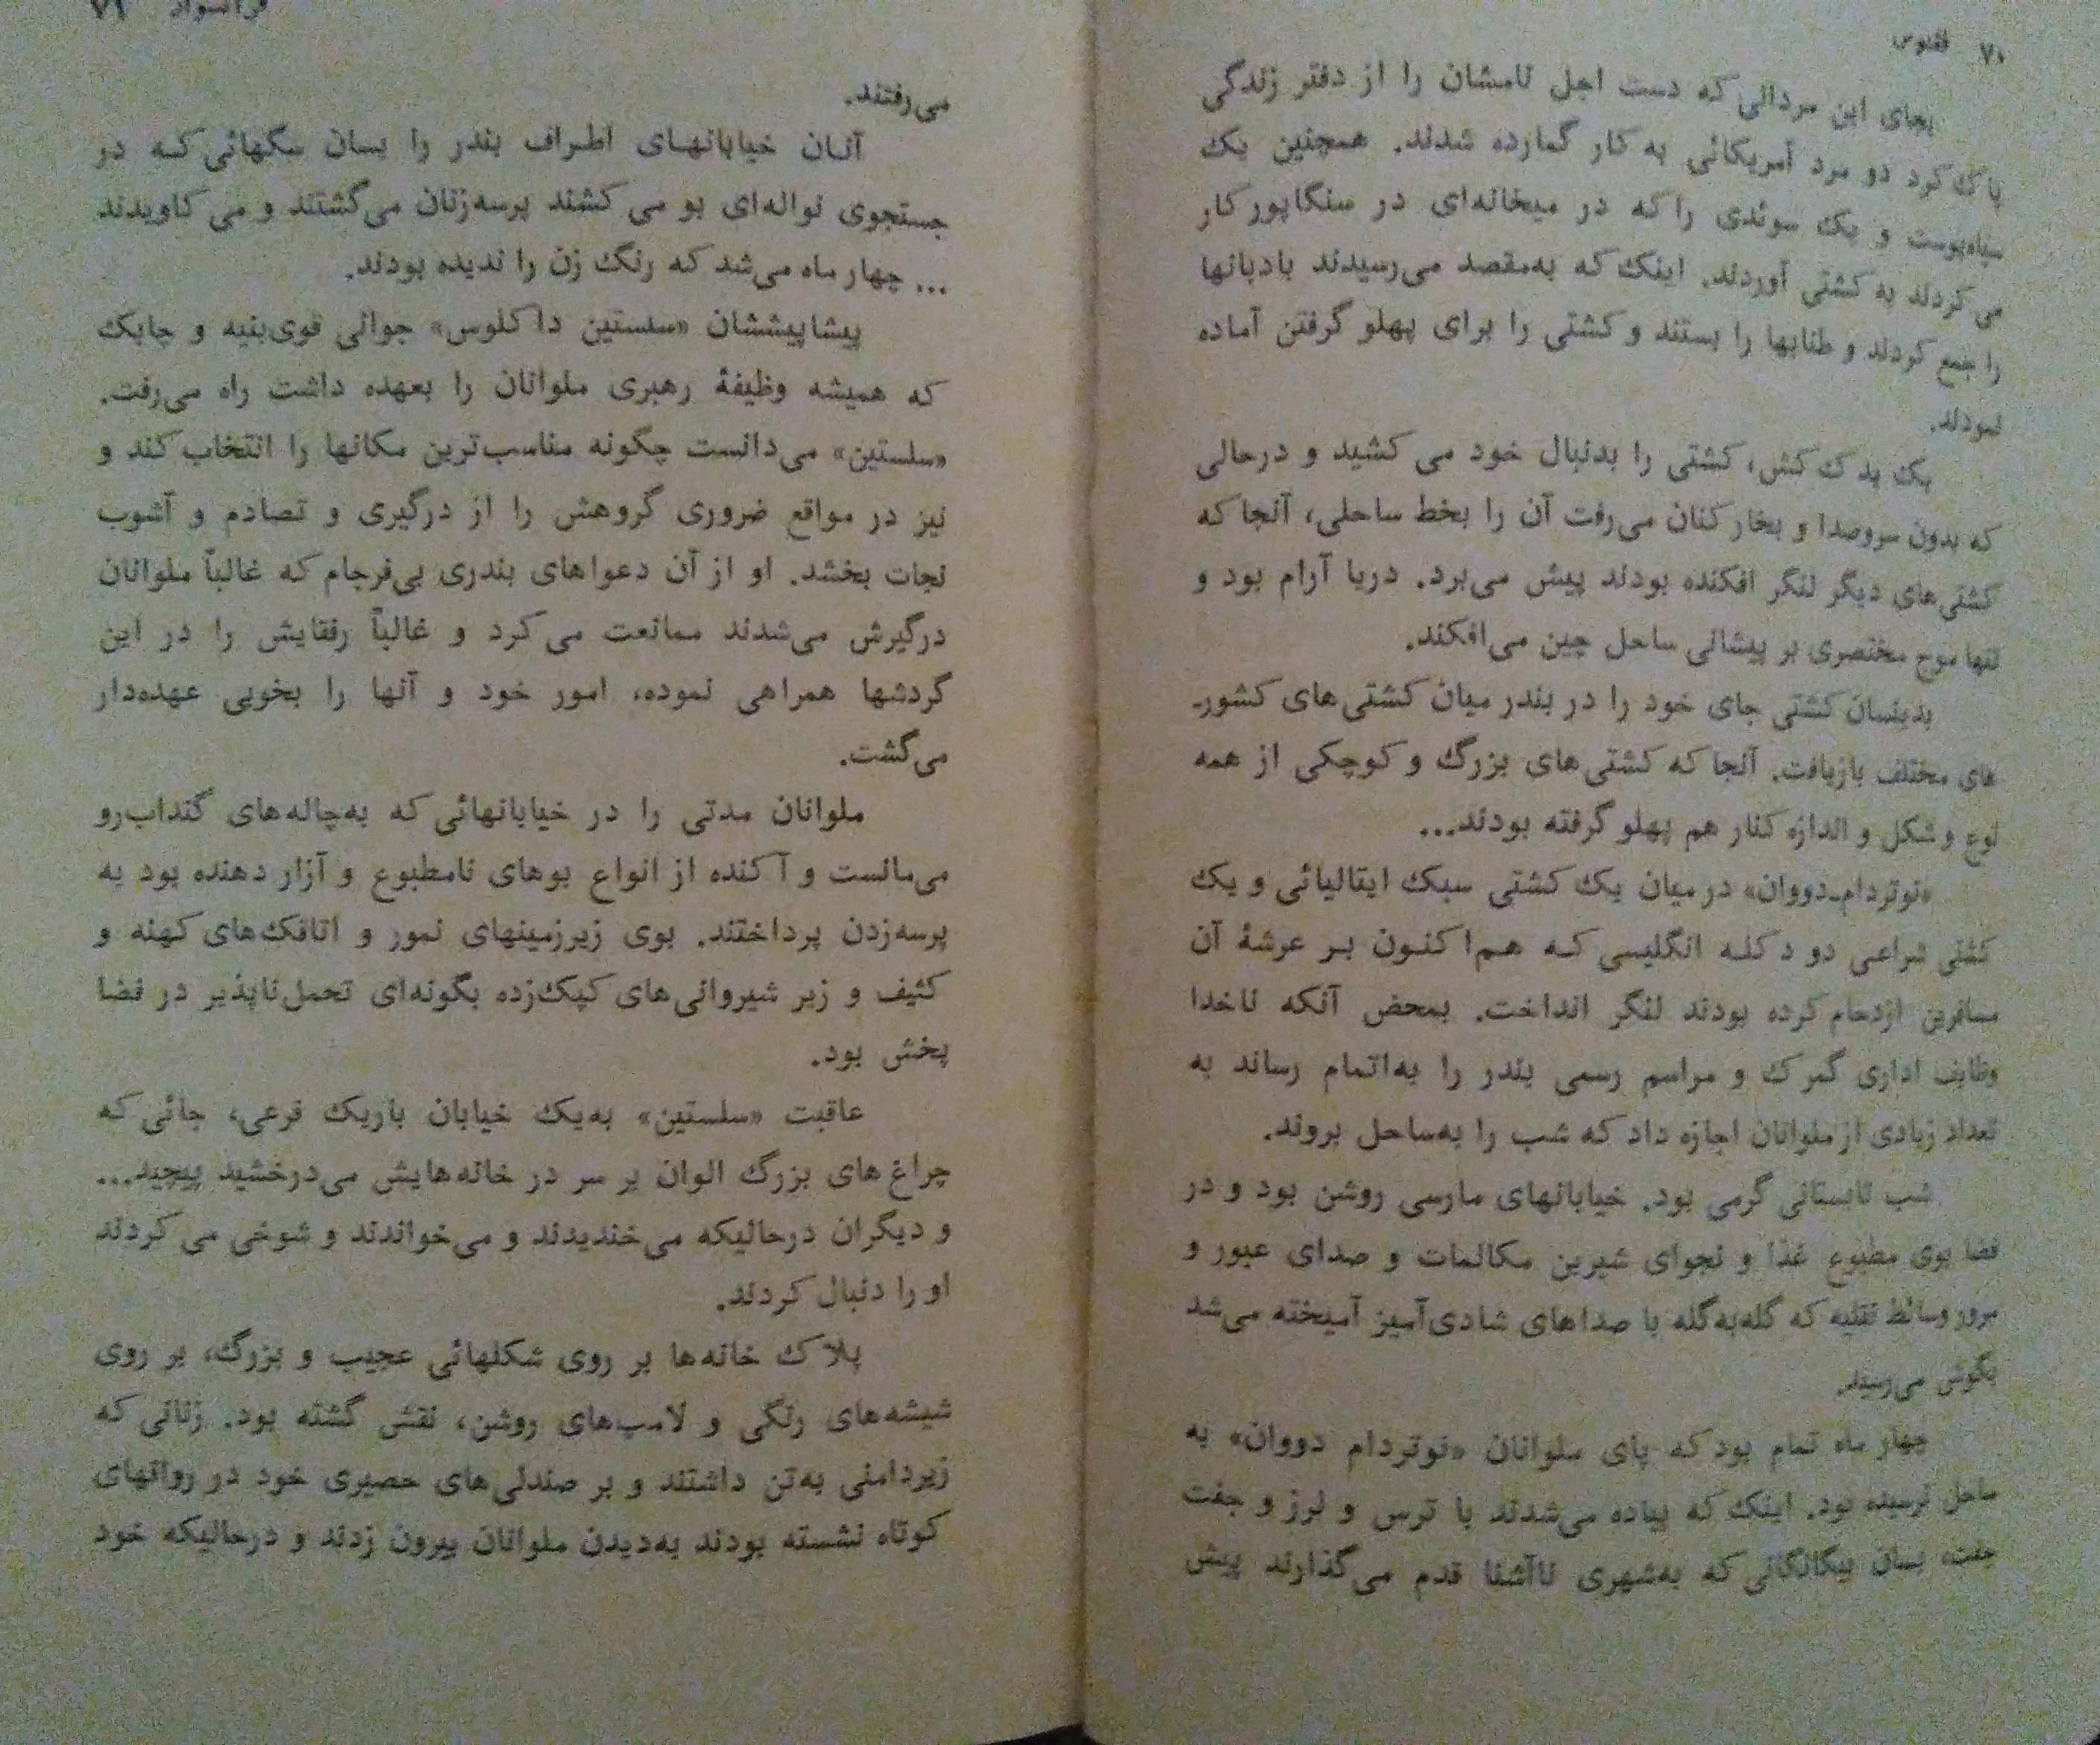 ۷۰ ققنوس
بجای این مردانی که دست اجل نامشان را از دفتر زندگی
پاک کرد دو مرد آمریکائی به کار گمارده شدند. همچنین یک
سیاه‌پوست و یک سوئدی را که در میخانه‌ای در سنگاپور کار
می کردند به کشتی آوردند. اینک که به‌مقصد می‌رسیدند بادبانها
را جمع کردند و طنابها را بستند و کشتی را برای پهلو گرفتن آماده
نمودند.
یک یدک کش، کشتی را بدنبال خود می کشید و درحالی
که بدون سروصدا و بخار کنان می‌رفت آن را بخط ساحلی، آنجا که
کشتی‌های دیگر لنگر افکنده بودند پیش می‌برد. دریا آرام بود و
تنها موج مختصری بر پیشانی ساحل چین می‌افکند.
بدینسان کشتی جای خود را در بندر میان کشتی‌های کشور-
های مختلف بازیافت. آنجا که کشتی‌های بزرگ و کوچکی از همه
نوع و شکل و اندازه کنار هم پهلو گرفته بودند...
«نوتردام-دووان» در میان یک کشتی سبک ایتالیائی و یک
کشتی شراعی دو دکله انگلیسی که هم‌اکنون بر عرشهٔ آن
مسافرین ازدحام کرده بودند لنگر انداخت. بمحض آنکه ناخدا
وظایف اداری گمرک و مراسم رسمی بندر را به‌اتمام رساند به
تعداد زیادی از ملوانان اجازه داد که شب را به‌ساحل بروند.
شب تابستانی گرمی بود. خیابانهای مارسی روشن بود و در
فضا بوی مطبوع غذا و نجوای شیرین مکالمات و صدای عبور و
مرور وسائط نقلیه که گله‌به‌گله با صداهای شادی‌آمیز آمیخته می‌شد
بگوش می‌رسید.
چهار ماه تمام بود که پای ملوانان «نوتردام دووان» به
ساحل نرسیده بود. اینک که پیاده می‌شدند با ترس و لرز و جفت
جفت، بسان بیگانگانی که به‌شهری ناآشنا قدم می‌گذارند پیش
۷۱
می‌رفتند.
آنان خیابانهای اطراف بندر را بسان سگهائی که در
جستجوی نواله‌ای بو می کشند پرسه‌زنان می‌گشتند و می کاویدند
... چهار ماه می‌شد که رنگ زن را ندیده بودند.
پیشاپیششان «سلستین داکلوس» جوانی قوی‌بنیه و چابک
که همیشه وظیفهٔ رهبری ملوانان را بعهده داشت راه می‌رفت.
«سلستین» می‌دانست چگونه مناسب‌ترین مکانها را انتخاب کند و
نیز در مواقع ضروری گروهش را از درگیری و تصادم و آشوب
نجات بخشد. او از آن دعواهای بندری بی‌فرجام که غالباً ملوانان
درگیرش می‌شدند ممانعت می کرد و غالباً رفقایش را در این
گردشها همراهی نموده، امور خود و آنها را بخوبی عهده‌دار
می‌گشت.
ملوانان مدتی را در خیابانهائی که به‌چاله‌های گنداب‌رو
می‌مانست و آکنده از انواع بوهای نامطبوع و آزار دهنده بود به
پرسه‌زدن پرداختند. بوی زیرزمینهای نمور و اتاقک‌های کهنه و
کثیف و زیر شیروانی‌های کپک‌زده بگونه‌ای تحمل‌ناپذیر در فضا
پخش بود.
عاقبت «سلستین» به‌یک خیابان باریک فرعی، جائی که
چراغ‌های بزرگ الوان بر سر در خانه‌هایش می‌درخشید پیچید...
و دیگران درحالیکه می‌خندیدند و می‌خواندند و شوخی می کردند
او را دنبال کردند.
پلاک خانه‌ها بر روی شکلهائی عجیب و بزرگ، بر روی
شیشه‌های رنگی و لامپ‌های روشن، نقش گشته بود. زنانی که
زیردامنی به‌تن داشتند و بر صندلی‌های حصیری خود در رواقهای
کوتاه نشسته بودند به‌دیدن ملوانان بیرون زدند و درحالیکه خود